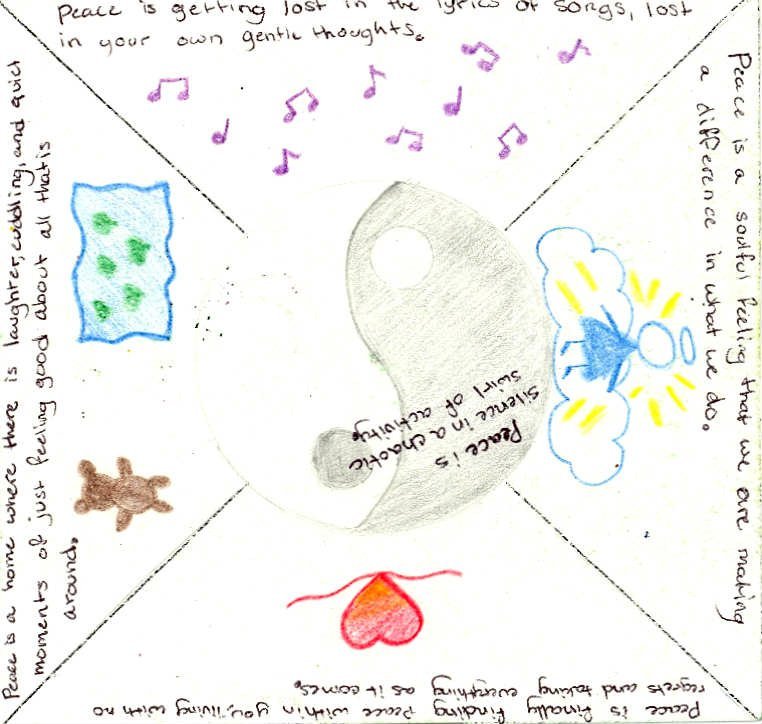 Peace is getting lost in the lyrics of songs, lost
in your own gentle thoughts.
Peace is a soulful feeling that we are making
a difference in what we do.
Peace is finally finding peace within you, living with no
regrets and taking everything as it comes.
Peace is a home where there is laughter, cuddling, and quiet
moments of just feeling good about all that is
around.
Peace is
silence in a chaotic
swirl of activity.